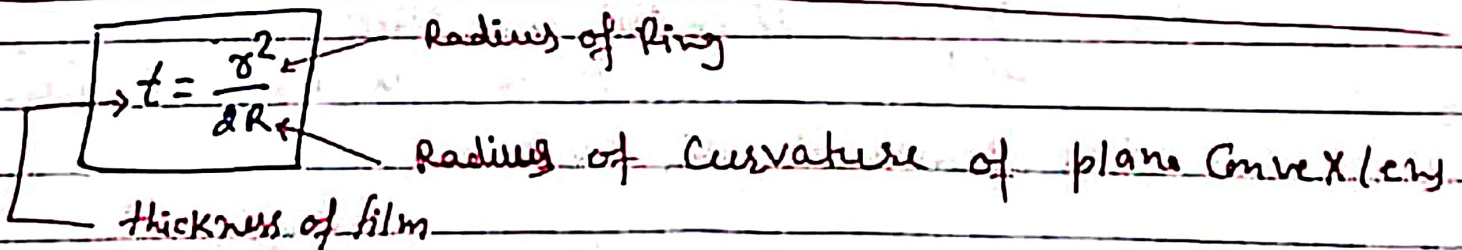 Radius of Ring
t = r²/2R
Radius of Curvature of plano Convex lens
thickness of film